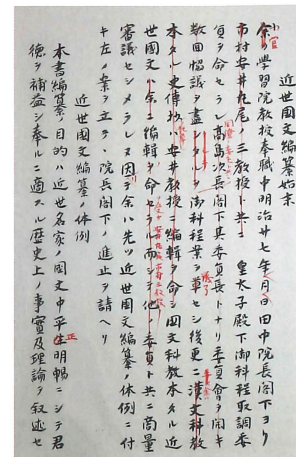 近世國文編纂始末
余學習院教授奉職中明治廿七年 月 日田中院長閣下ヨリ
市村安井丸尾ノ三教授ト共ニ 皇太子殿下御科程取調委
員ヲ命セラレ高島次長閣下其委員長トナリ委員會ヲ開キ
數回協議ヲ盡シ御科程案ヲ草セシ後更ニ漢文科教
本タル史傳 安井教授ニ編輯ヲ命シ國文科教本タル近
世國文ハ余ニ編輯ヲ命セラレ而シテ他ノ委員ト共ニ商量
審議セシメラレヌ因テ余ハ先ツ近世國文編纂ノ体例ニ付
キ左ノ案ヲ立テ院長閣下ノ進止ヲ請ヘリ
近世國文編纂ノ体例
本書編纂ノ目的ハ近世名家ノ國文中平正明暢ニシテ君
德ヲ補益シ奉ルニ適スル歷史上ノ事實及理論ヲ叙述セ